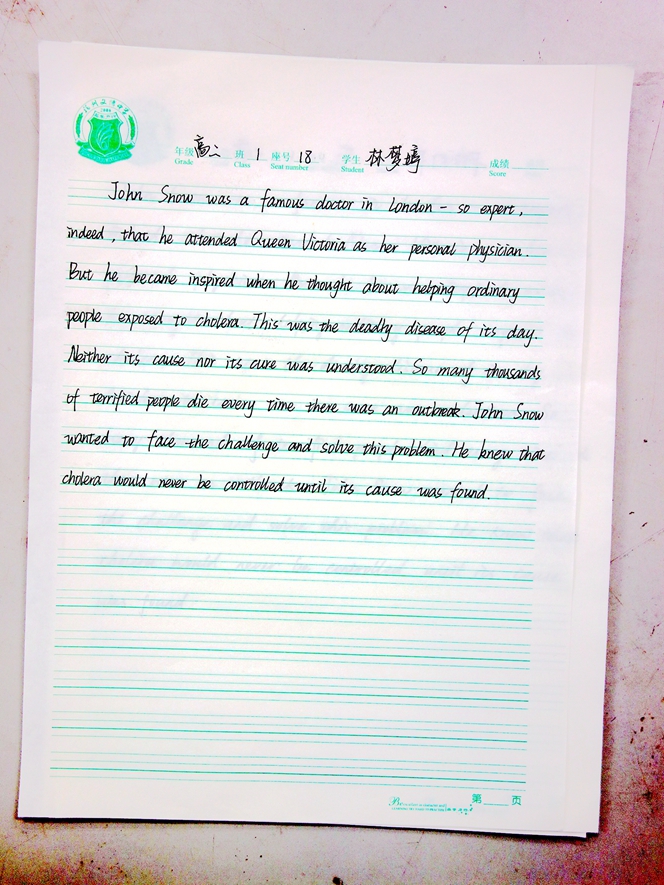 年级 高二 班 1 座号 18 学生 林梦婷 成绩
Grade Class Seat number Student Score
John Snow was a famous doctor in London - so expert,
indeed, that he attended Queen Victoria as her personal physician.
But he became inspired when he thought about helping ordinary
people exposed to cholera. This was the deadly disease of its day.
Neither its cause nor its cure was understood. So many thousands
of terrified people die every time there was an outbreak. John Snow
wanted to face the challenge and solve this problem. He knew that
cholera would never be controlled until its cause was found.
第 页